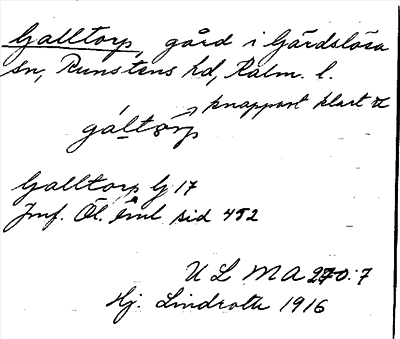 Galltorp, gård i Gärdslösa
sn, Runstens hd, Kalm. l.
knappast klart
gáltòrp
Galltorp Gj 17
Jmf. Öl. inl sid 452
ULMA 270:7
Hj. Lindroth 1916